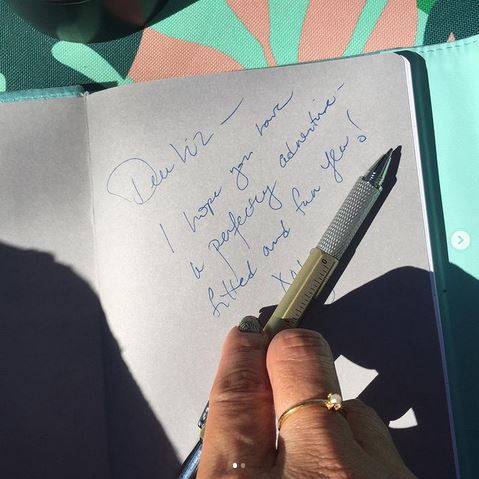 Dear Liz —
I hope you have
a perfectly adventure-
filled and fun year!